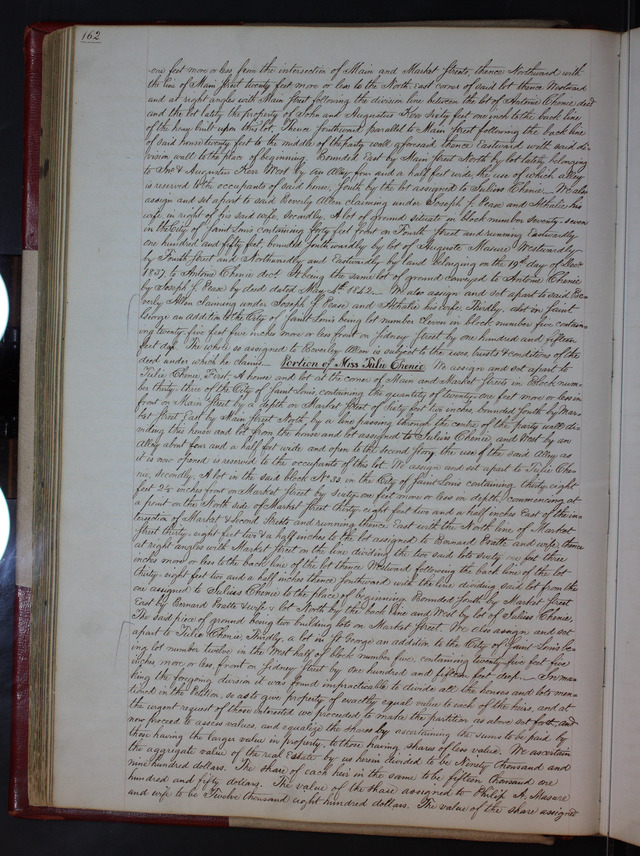 162
one feet more or less from the intersection of Main and Market Streets, thence Northward with
the line of Main Street twenty feet more or less to the North East corner of said lot thence Westward
and at right angles with Main Street following the division line between the lot of Antoine Chenie decd
and the lot lately the property of John and Augustus Kerr Sixty feet one inch to the back line
of the house built upon this lot, Thence Southward parallel to Main Street following the back line
of said house twenty feet to the middle of the party wall aforesaid thence Eastward with said di-
vision wall to the place of beginning. Bounded East by Main Street North by lot lately belonging
to Jno & Augustus Kerr West by an Alley four and a half feet wide, the use of which alley
is reserved to the occupants of said house, South by the lot assigned to Julius Chenie. We also
assign and set apart to said Beverly Allen claiming under Joseph J. Pease and Athalie his
wife, in right of his said wife, Secondly, A lot of ground situate in block number Seventy-seven
in the City of Saint Louis containing forty feet front on Fourth Street and running Eastwardly
one hundred and fifty feet, bounded Southwardly by lot of Auguste Masure Westwardly
by Fourth Street and Northwardly and Eastwardly by land belonging on the 19th day of Decr
1837 to Antoine Chenie decd It being the same lot of ground conveyed to Antoine Chenie
by Joseph J. Pease by deed dated 4th 1842. We also assign and set apart to said Be-
verly Allen claiming under Joseph J. Pease and Athalie his wife, Thirdly, a lot in Saint
George an addition to the City of Saint Louis being lot number Eleven in block number five contain-
ing twenty-five feet five inches more or less front on Sidney Street by one hundred and fifteen
feet deep. The whole so assigned to Beverley Allen is subject to the uses trusts & conditions of the
deed under which he claims. Portion of Miss Julie Chenie. We assign and set apart to
Julie Chenie, First A house and lot at the corner of Main and Market Streets in Block num-
ber thirty-three of the City of Saint Louis, containing the quantity of twenty-one feet more or less in
front on Main Street by a depth on Market Street of Sixty feet two inches, bounded South by Mar-
ket Street East by Main Street North, by a line passing through the centre of the party wall di-
viding this house and lot from the house and lot assigned to Julius Chenie, and West by an
Alley about four and a half feet wide and open to the second story the use of the said Alley as
it is now opened is reserved to the occupants of this lot. We assign and set apart to Julie Che-
nie, Secondly, A lot in the said block No 33 in the City of Saint Louis containing thirty eight
feet 2½ inches front on Market Street by Sixty-one feet more or less in depth, commencing at
a point on the North side of Market Street thirty-eight feet two and a half inches East of the in-
tersection of Market & Second Streets and running thence East with the North line of Market
Street thirty-eight feet two & a half inches to the lot assigned to Bernard Pratte and wife, thence
at right angles with Market Street on the line dividing the two said lots sixty one feet three
inches more or less to the back line of the lot thence Westward following the back line of the lot
thirty-eight feet two and a half inches thence Southward with the line dividing said lot from the
one assigned to Julius Chenie to the place of beginning. Bounded South by Market Street
East by Bernard Pratte & wife's lot North by the back line and West by lot of Julius Chenie,
The said piece of ground being two building lots on Market Street. We also assign and set
apart to Julie Chenie, Thirdly, a lot in St George an addition to the City of Saint Louis be-
ing lot number twelve in the West half of block number five, containing twenty-five feet five
inches more or less front on Sidney Street by one hundred and fifteen feet deep. In ma-
king the forgoing division it was found impracticable to divide all the houses and lots men-
tioned in the Petition, so as to give property of exactly equal value to each of the heirs, and at
the urgent request of those interested we proceeded to make the partition as above set forth and
now proceed to assess values, and equalize the shares by ascertaining the sums to be paid by
those having the larger value in property, to those having shares of less value. We ascertain
the aggregate value of the real Estate by us herein divided to be Ninety thousand and
nine hundred dollars. The share of each heir in the same to be fifteen thousand one
hundred and fifty dollars. The value of the share assigned to Philip A. Masure
and wife to be Twelve thousand eight hundred dollars. The value of the share assigned